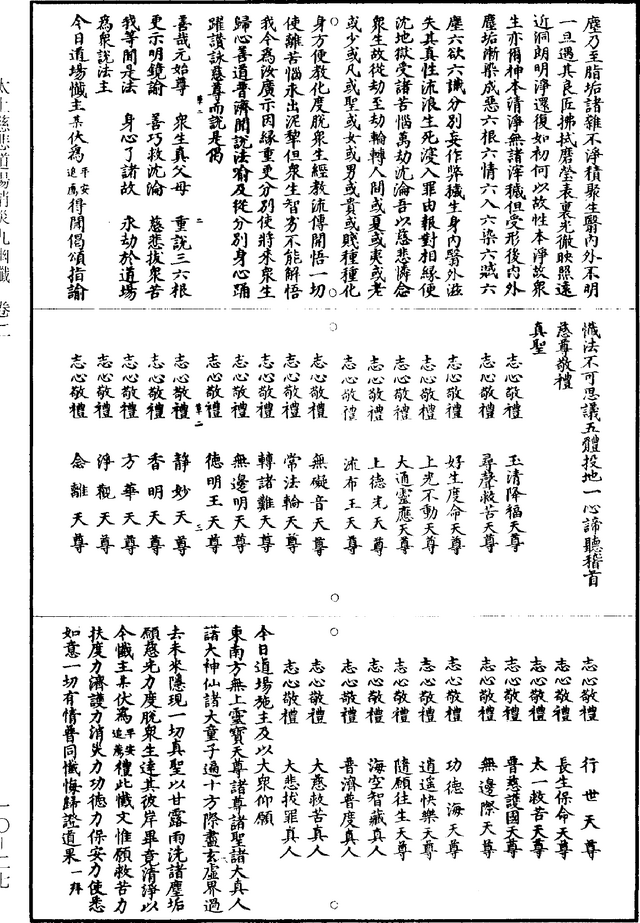 塵乃至脂垢諸雜不淨積聚生翳內外不明
一旦遇其良匠拂拭磨瑩表裏光徹映照遠
近洞朗明淨還復如初何以故性本淨故衆
生亦爾神本清淨無諸滓穢但受形後內外
塵垢漸染成惡六根六情六入六染六賊六
塵六欲六識分別妄作弊穢生身內翳外滋
失其真性流浪生死淩入罪由報對相緣便
沈地獄受諸苦惱萬劫沈淪吾以慈悲憐念
衆生故從劫至劫輪轉人間或夏或夷或老
或少或凡或聖或女或男或貴或賤種種化
身方便教化度脫衆生經教流傳開悟一切
使離苦惱永出泥犂但衆生智劣不能解悟
我今為汝廣示因緣重更分別使將來衆生
歸心善道普濟聞說法喻及從分別身心踊
躍讚詠慈尊而說是偈
善哉元始尊　衆生真父母　重說三六根
更示明鏡諭　善巧救沈淪　慈悲拔衆苦
我等聞是法　身心了諸故　永劫於道場
為衆說法主
今日道場懺主某伏為平安追薦得聞偈頌指諭
懺法不可思議五體投地一心諦聽稽首
慈尊敬禮
真聖
志心敬禮　玉清降福天尊
志心敬禮　尋聲救苦天尊
志心敬禮　好生度命天尊
志心敬禮　上光不動天尊
志心敬禮　大通靈應天尊
志心敬禮　上德光天尊
志心敬禮　流布王天尊
志心敬禮　無礙音天尊
志心敬禮　常法輪天尊
志心敬禮　轉諸難天尊
志心敬禮　無邊明天尊
志心敬禮　德明王天尊
志心敬禮　靜妙天尊
志心敬禮　香明天尊
志心敬禮　方華天尊
志心敬禮　淨觀天尊
志心敬禮　念離天尊
志心敬禮　行世天尊
志心敬禮　長生保命天尊
志心敬禮　太一救苦天尊
志心敬禮　普慈護國天尊
志心敬禮　無邊際天尊
志心敬禮　功德海天尊
志心敬禮　逍遥快樂天尊
志心敬禮　隨願往生天尊
志心敬禮　海空智藏真人
志心敬禮　普濟普度真人
志心敬禮　大慈救苦真人
志心敬禮　大悲拔罪真人
今日道場施主及以大衆仰願
東南方無上靈寶天尊諸尊諸聖諸大真人
諸大神仙諸大童子過十方際盡玄虛界過
去未來隱現一切真聖以甘露雨洗諸塵垢
願慈光力度脫衆生達其彼岸畢竟清淨以
今懺主某伏為平安追薦禮此懺文惟願救苦力
扶度力濟護力消災力功德力保安力使悉
如意一切有情普同懺悔歸證道果一拜
太上慈悲道場消災九幽懺　卷二
一〇—二七